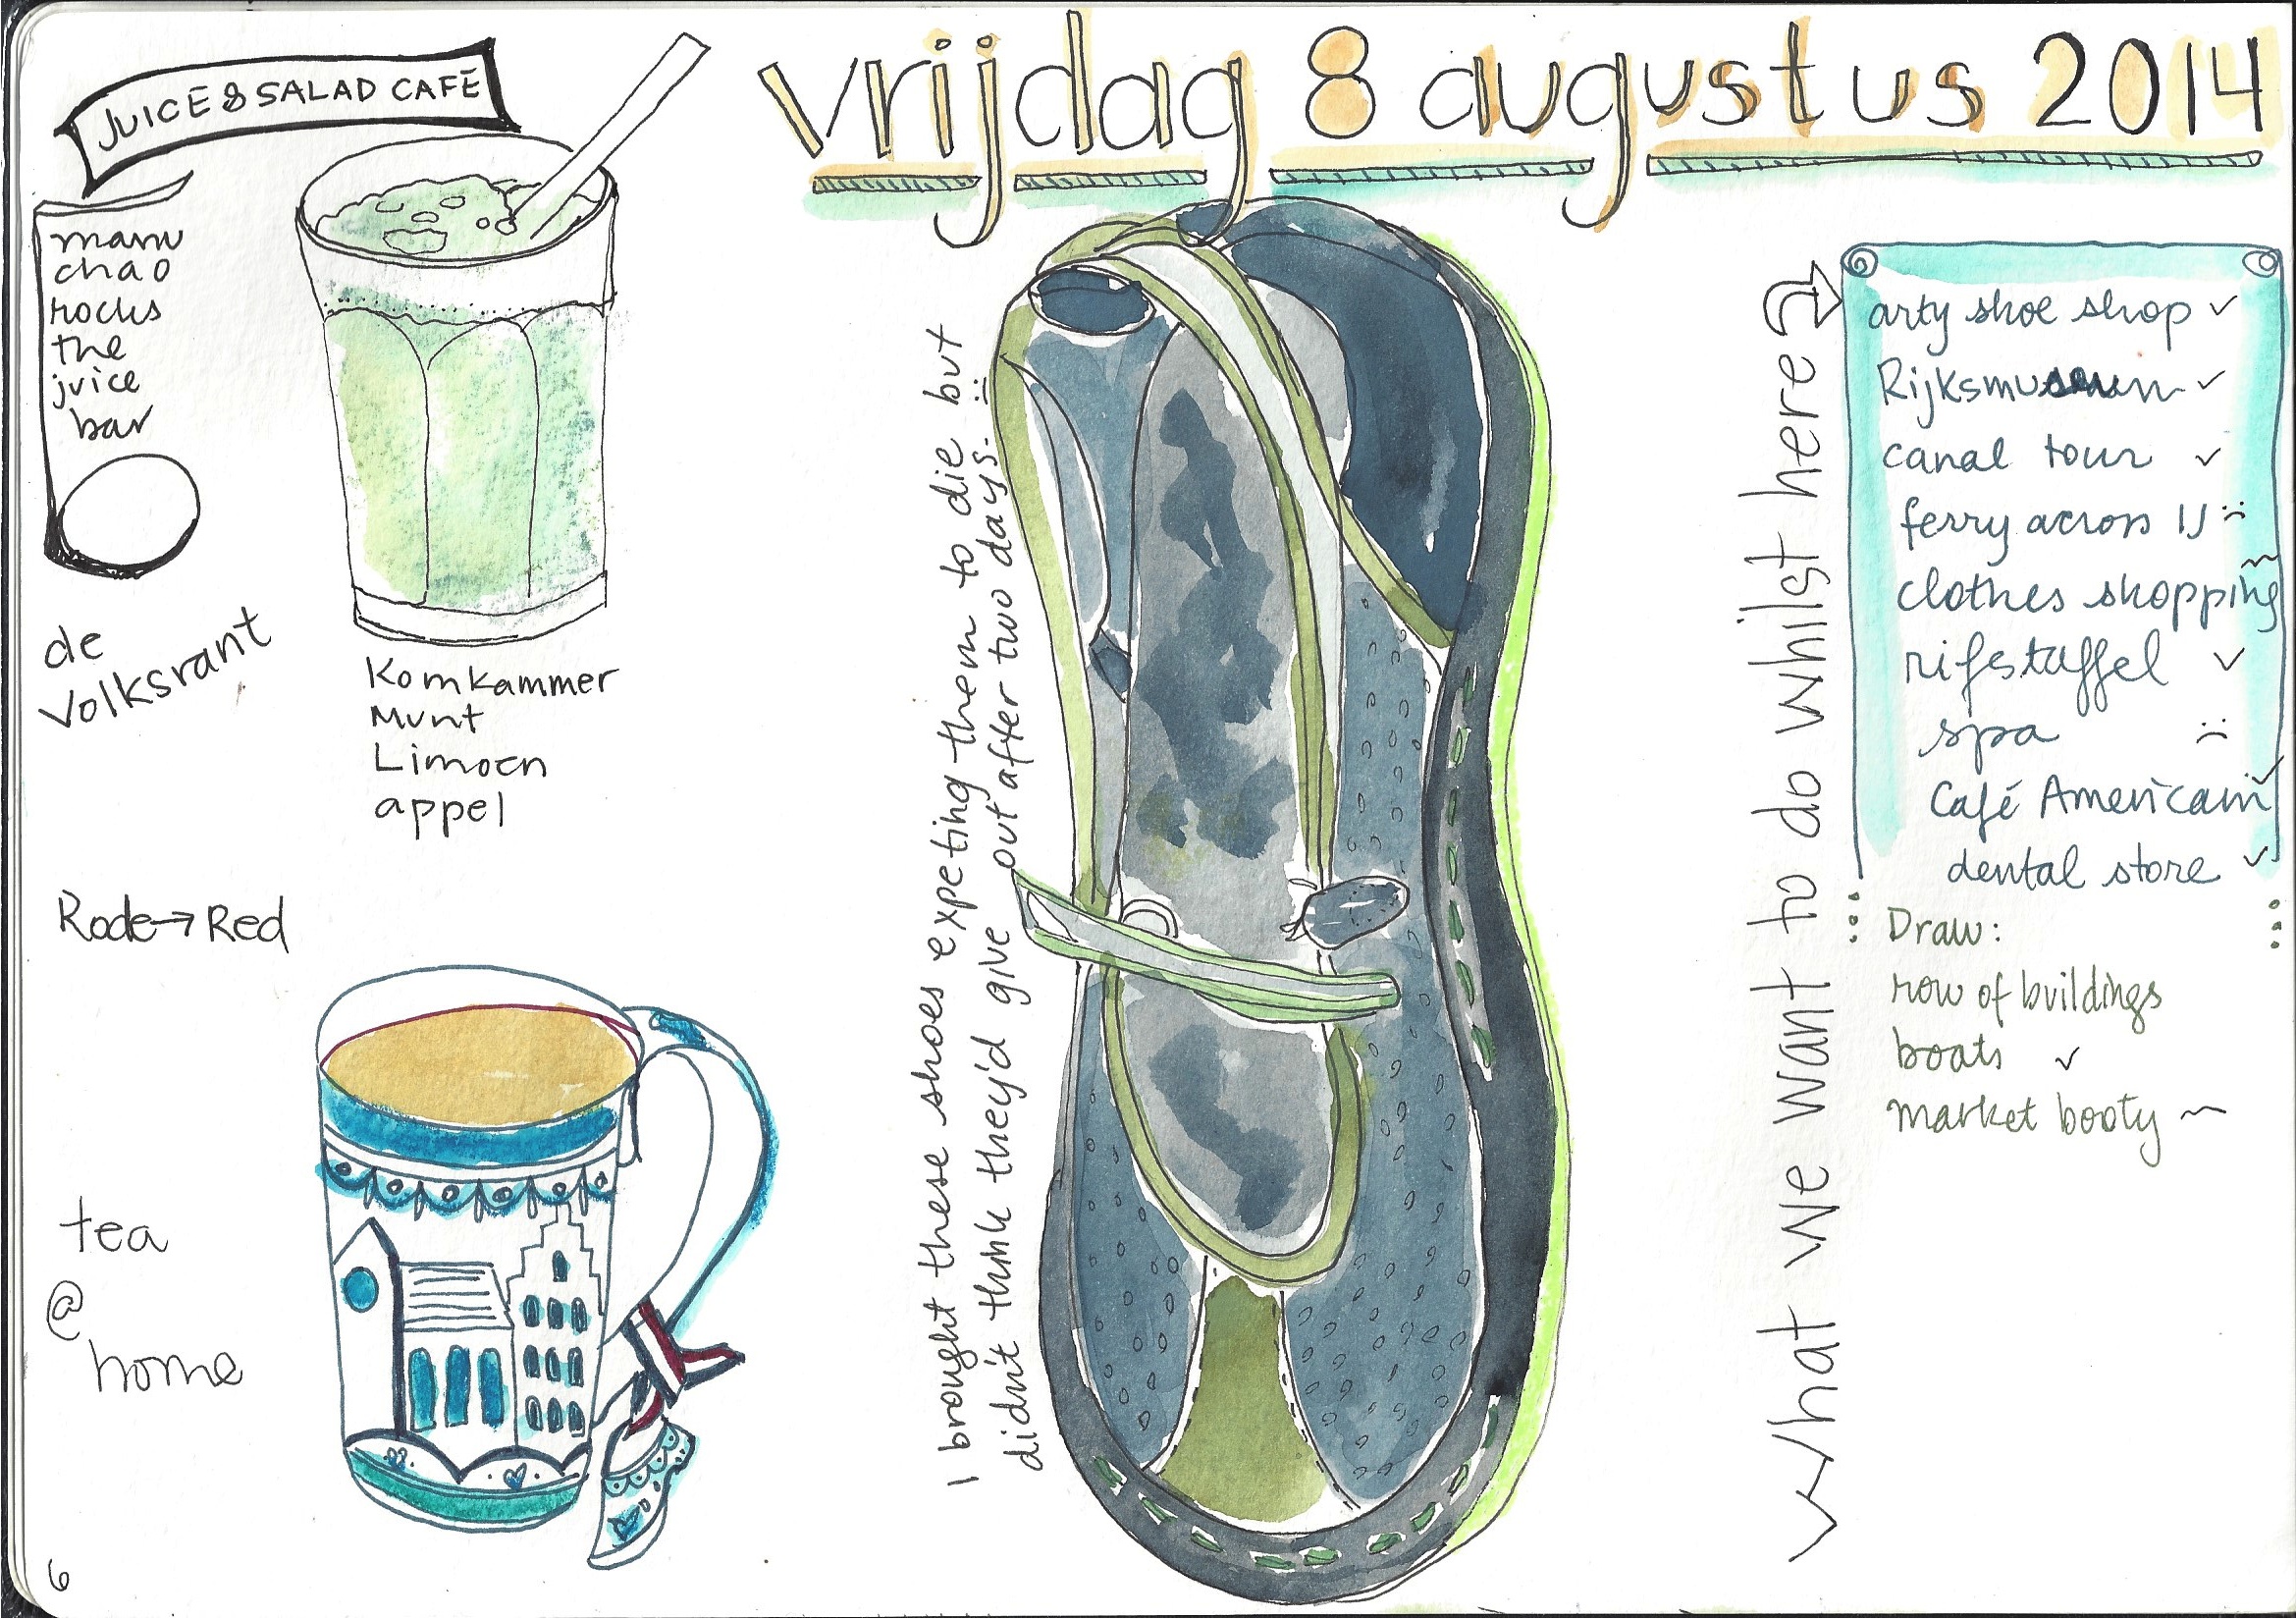 vrijdag 8 augustus 2014
JUICE & SALAD CAFÉ
manu
chao
rocks
the
juice
bar
de
Volksrant
Komkammer
Munt
Limoen
appel
Rode → Red
tea
@
home
6
I brought these shoes expeting them to die but
didn't think they'd give out after two days.
What we want to do whilst here
arty shoe shop ✓
Rijksmuseum ✓
canal tour ✓
ferry across IJ
clothes shopping
rifstaffel ✓
spa
Café Americain ✓
dental store ✓
Draw:
row of buildings
boats ✓
market booty ~